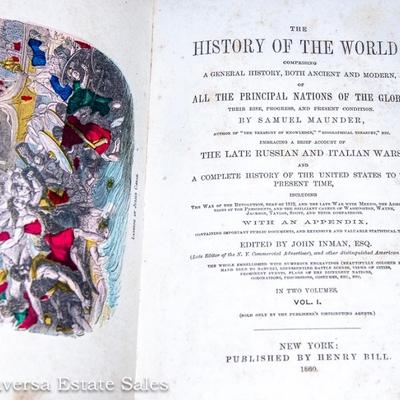 THE
HISTORY OF THE WORLD
COMPRISING
A GENERAL HISTORY, BOTH ANCIENT AND MODERN,
OF
ALL THE PRINCIPAL NATIONS OF THE GLOB
THEIR RISE, PROGRESS, AND PRESENT CONDITION.
BY SAMUEL MAUNDER,
AUTHOR OF "THE TREASURY OF KNOWLEDGE," "BIOGRAPHICAL TREASURY," ETC.
EMBRACING A BRIEF ACCOUNT OF
THE LATE RUSSIAN AND ITALIAN WARS
AND
A COMPLETE HISTORY OF THE UNITED STATES TO
PRESENT TIME,
INCLUDING
THE WAR OF THE REVOLUTION, THAT OF 1812, AND THE LATE WAR WITH MEXICO, THE
OF THE PRESIDENTS, AND THE BRILLIANT CAREER OF WASHINGTON, WAYNE,
JACKSON, TAYLOR, SCOTT, AND THEIR COMPANIONS.
WITH AN APPENDIX,
CONTAINING IMPORTANT PUBLIC DOCUMENTS, AND EXTENSIVE AND VALUABLE STATISTICAL
EDITED BY JOHN INMAN, ESQ.
(Late Editor of the N. Y. Commercial Advertiser), and other distinguished American
THE WHOLE EMBELLISHED WITH NUMEROUS ENGRAVINGS (BEAUTIFULLY COLORED
REPRESENTING BATTLE SCENES, VIEWS OF CITIES,
PROMINENT EVENTS, FLAGS OF THE DIFFERENT NATIONS,
CORONATIONS, PROCESSIONS, COSTUMES, ETC., ETC.
IN TWO VOLUMES.
VOL. I.
(SOLD ONLY BY THE PUBLISHER'S DISTRIBUTING AGENTS.)
NEW YORK:
PUBLISHED BY HENRY BILL.
1860.
LANDING OF JULIUS CÆSAR.
versa Estate Sales